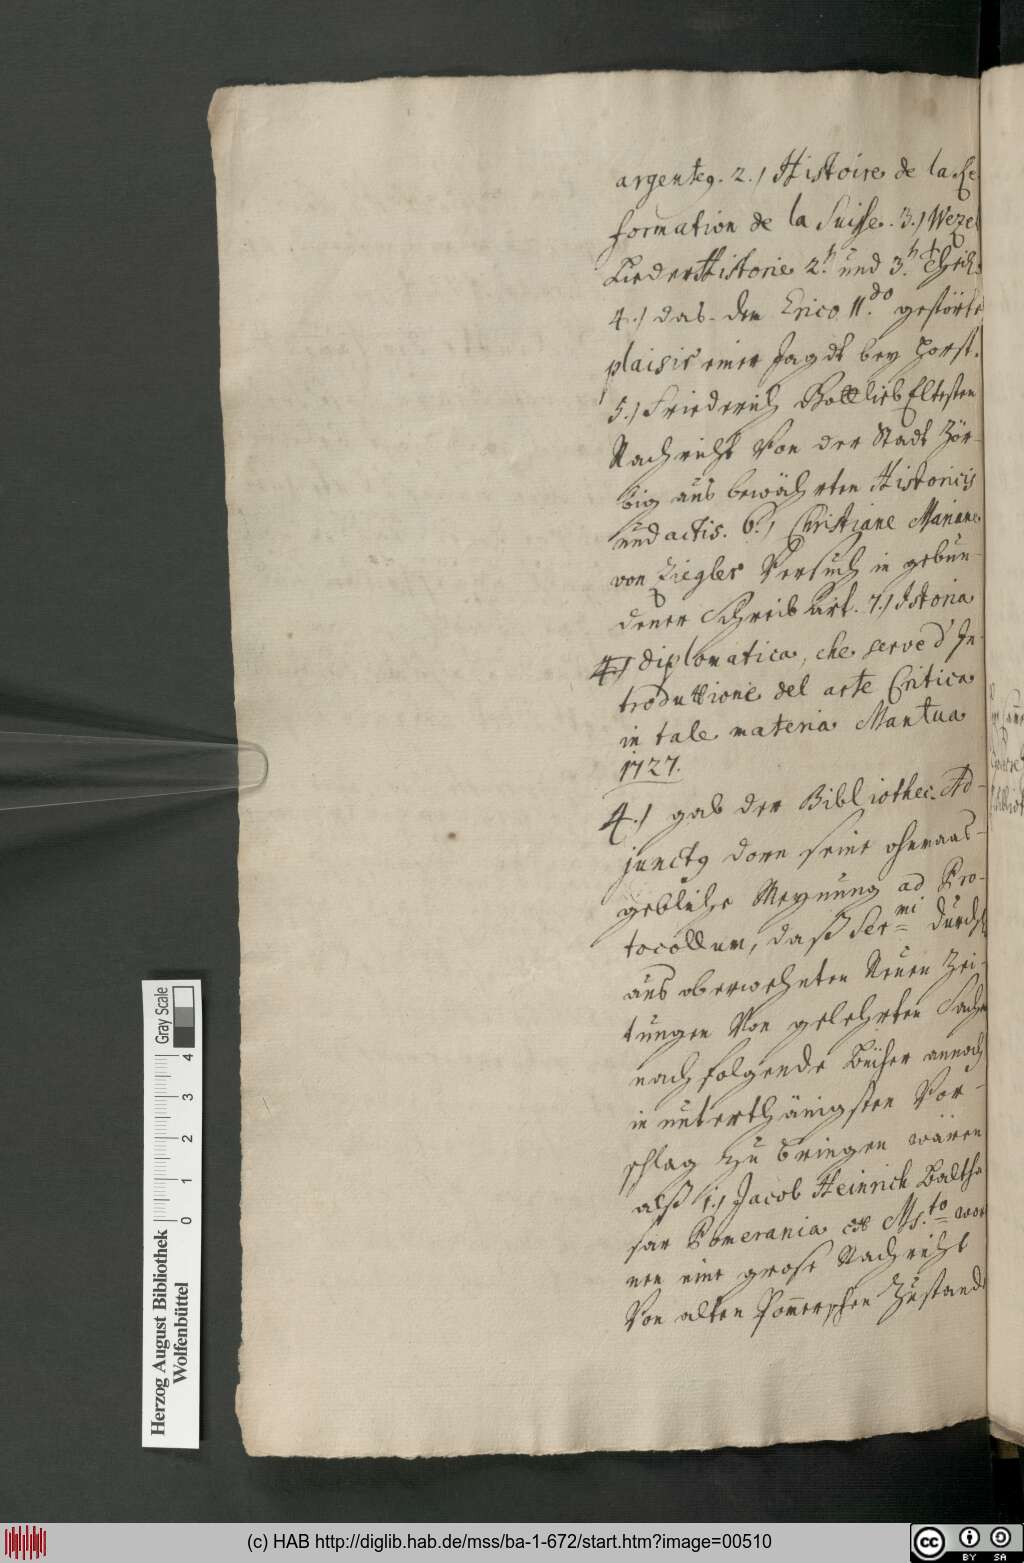 argenteg. 2.) Histoire de la Re
formation de la Suisse. 3.) Wezels
LiederHistorie 2.r und 3.r Theil.
4.) das dem Erico II.do gestörte
plaisir einer Jagdt bey Horst.
5.) Friederich Gottlieb Eltesten
Nachricht Von der Stadt Zör-
big aus bewährten Historicis
und actis. 6.) Christiane Mariane
von Ziegler Versuch in gebun-
dener Schreib art. 7.) Istoria
4.) diplomatica, che serve d'In-
troduttione del arte Critica
in tale materia Mantua
1727.
4.) gab der Bibliothec. Ad-
junctg Dorn seine ohnmaas-
gebliche Meynung ad Pro-
tocollum, daß Ser.mi durchl
aus oberwehnten Neuen Zei-
tungen Von gelehrten Sachen
nachfolgende Bücher annoch
in unterthänigsten Vor-
schlag zu bringen wären
alß 1.) Jacob Heinrich Baltha
sar Pomerania ex Ms.to wor
nen eine grose Nachricht
Von alten Pom̄erschen Zustande
Herzog August Bibliothek
Wolfenbüttel
0 1 2 3 4
Gray Scale
(c) HAB http://diglib.hab.de/mss/ba-1-672/start.htm?image=00510
cc BY SA